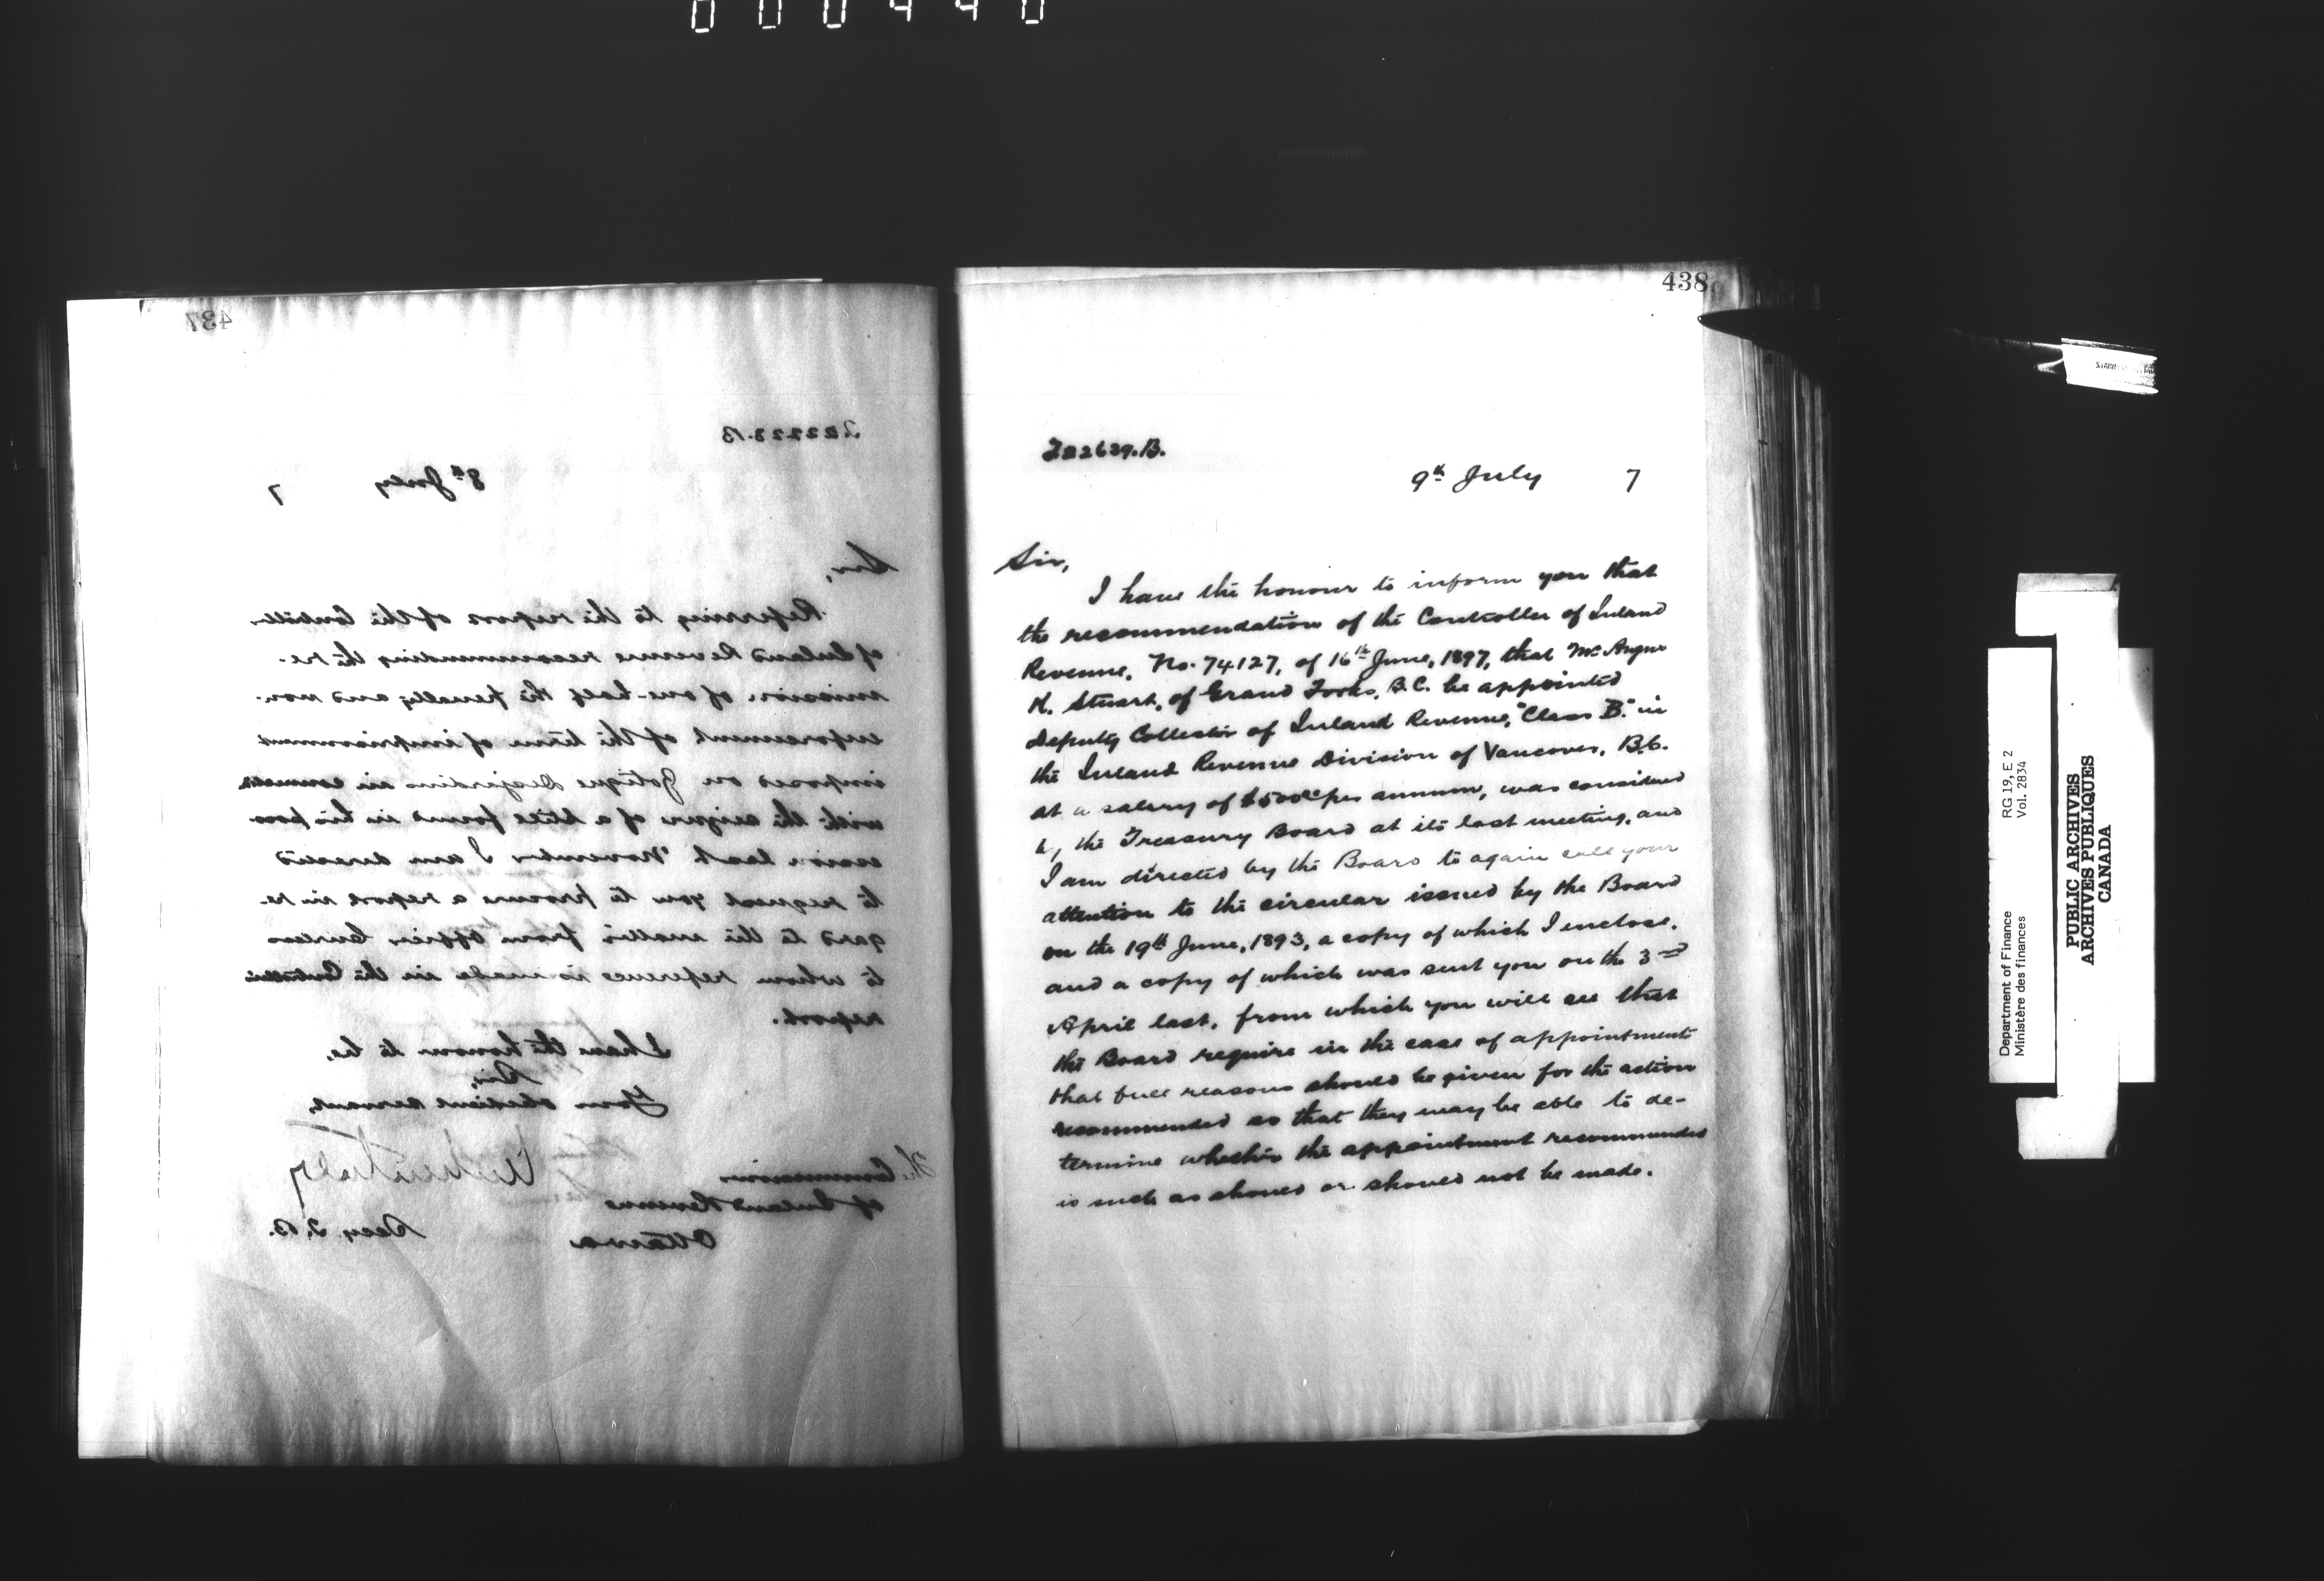 000440
437
T.22223.B
8th July 7
Sir,
Referring to the report of the Controller
of Inland Revenue recommending the re-
mission of one-half the penalty and non-
enforcement of the term of imprisonment
imposed on Zotique Desjardins in connection
with the seizure of a still found in his poss-
ession last November I am directed
to request you to procure a report in re-
gard to the matter from Officer
to whom reference is made in the Controller's
report.
I have the honour to be,
Sir,
Your obedient servant,
The Commissioner
of Inland Revenue
Ottawa
Secy. T.B.
438
T22639.B.
9th July 7
Sir,
I have the honour to inform you that
the recommendation of the Controller of Inland
Revenue, No. 74127, of 16th June, 1897, that Mr Angus
K. Stuart, of Grand Forks, B.C. be appointed
Deputy Collector of Inland Revenue, "Class B." in
the Inland Revenue Division of Vancouver, B.C.
at a salary of $500 per annum, was considered
by the Treasury Board at its last meeting, and
I am directed by the Board to again call your
attention to the circular issued by the Board
on the 19th June, 1893, a copy of which I enclose,
and a copy of which was sent you on the 3rd
April last, from which you will see that
the Board require in the case of appointments
that full reasons should be given for the action
recommended so that they may be able to de-
termine whether the appointment recommended
is such as should or should not be made.
Department of Finance RG 19, E 2
Ministère des finances Vol. 2834
PUBLIC ARCHIVES
ARCHIVES PUBLIQUES
CANADA